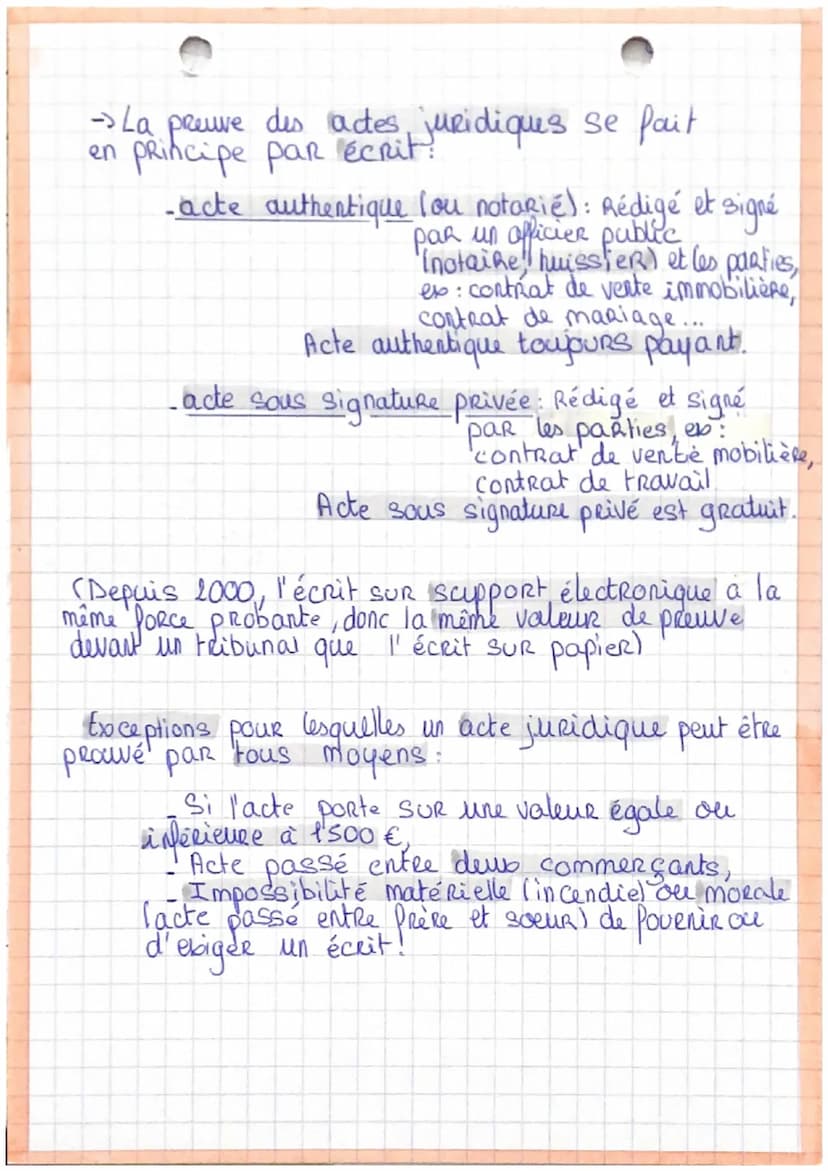 -> La preuve des actes juridiques se fait
en principe par écrit :
- acte authentique (ou notarié) : Rédigé et signé
par un officier public
(notaire, huissier) et les parties,
ex : contrat de vente immobilière,
contrat de mariage...
Acte authentique toujours payant.
- acte sous signature privée : Rédigé et signé
par les parties, ex :
contrat de vente mobilière,
contrat de travail
Acte sous signature privé est gratuit.
(Depuis 2000, l'écrit sur support électronique a la
même force probante, donc la même valeur de preuve
devant un tribunal que l'écrit sur papier)
Exceptions pour lesquelles un acte juridique peut être
prouvé par tous moyens :
- Si l'acte porte sur une valeur égale ou
inférieure à 1500 €,
- Acte passé entre deux commerçants,
- Impossibilité matérielle (incendie) ou morale
(acte passé entre frère et soeur) de fovenir ou
d'exiger un écrit !